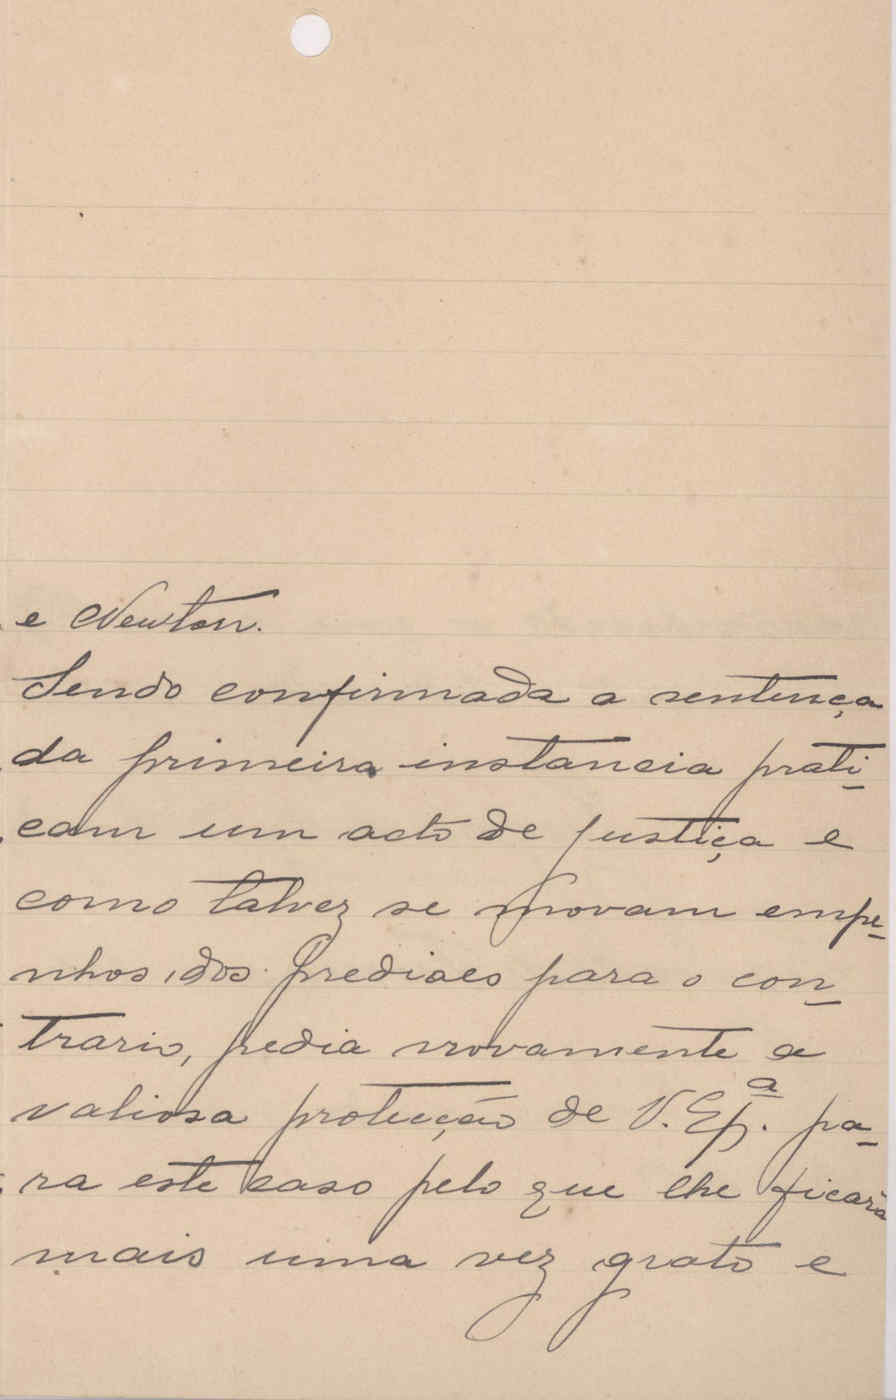 e Newton.
Sendo confirmada a sentença
da primeira instancia prati-
cam um acto de justiça e
como talvez se movam empe-
nhos dos prediaes para o con-
trario, pedia novamente a
valiosa protecção de V. Exª. pa-
ra este caso pelo que lhe ficará
mais uma vez grato e